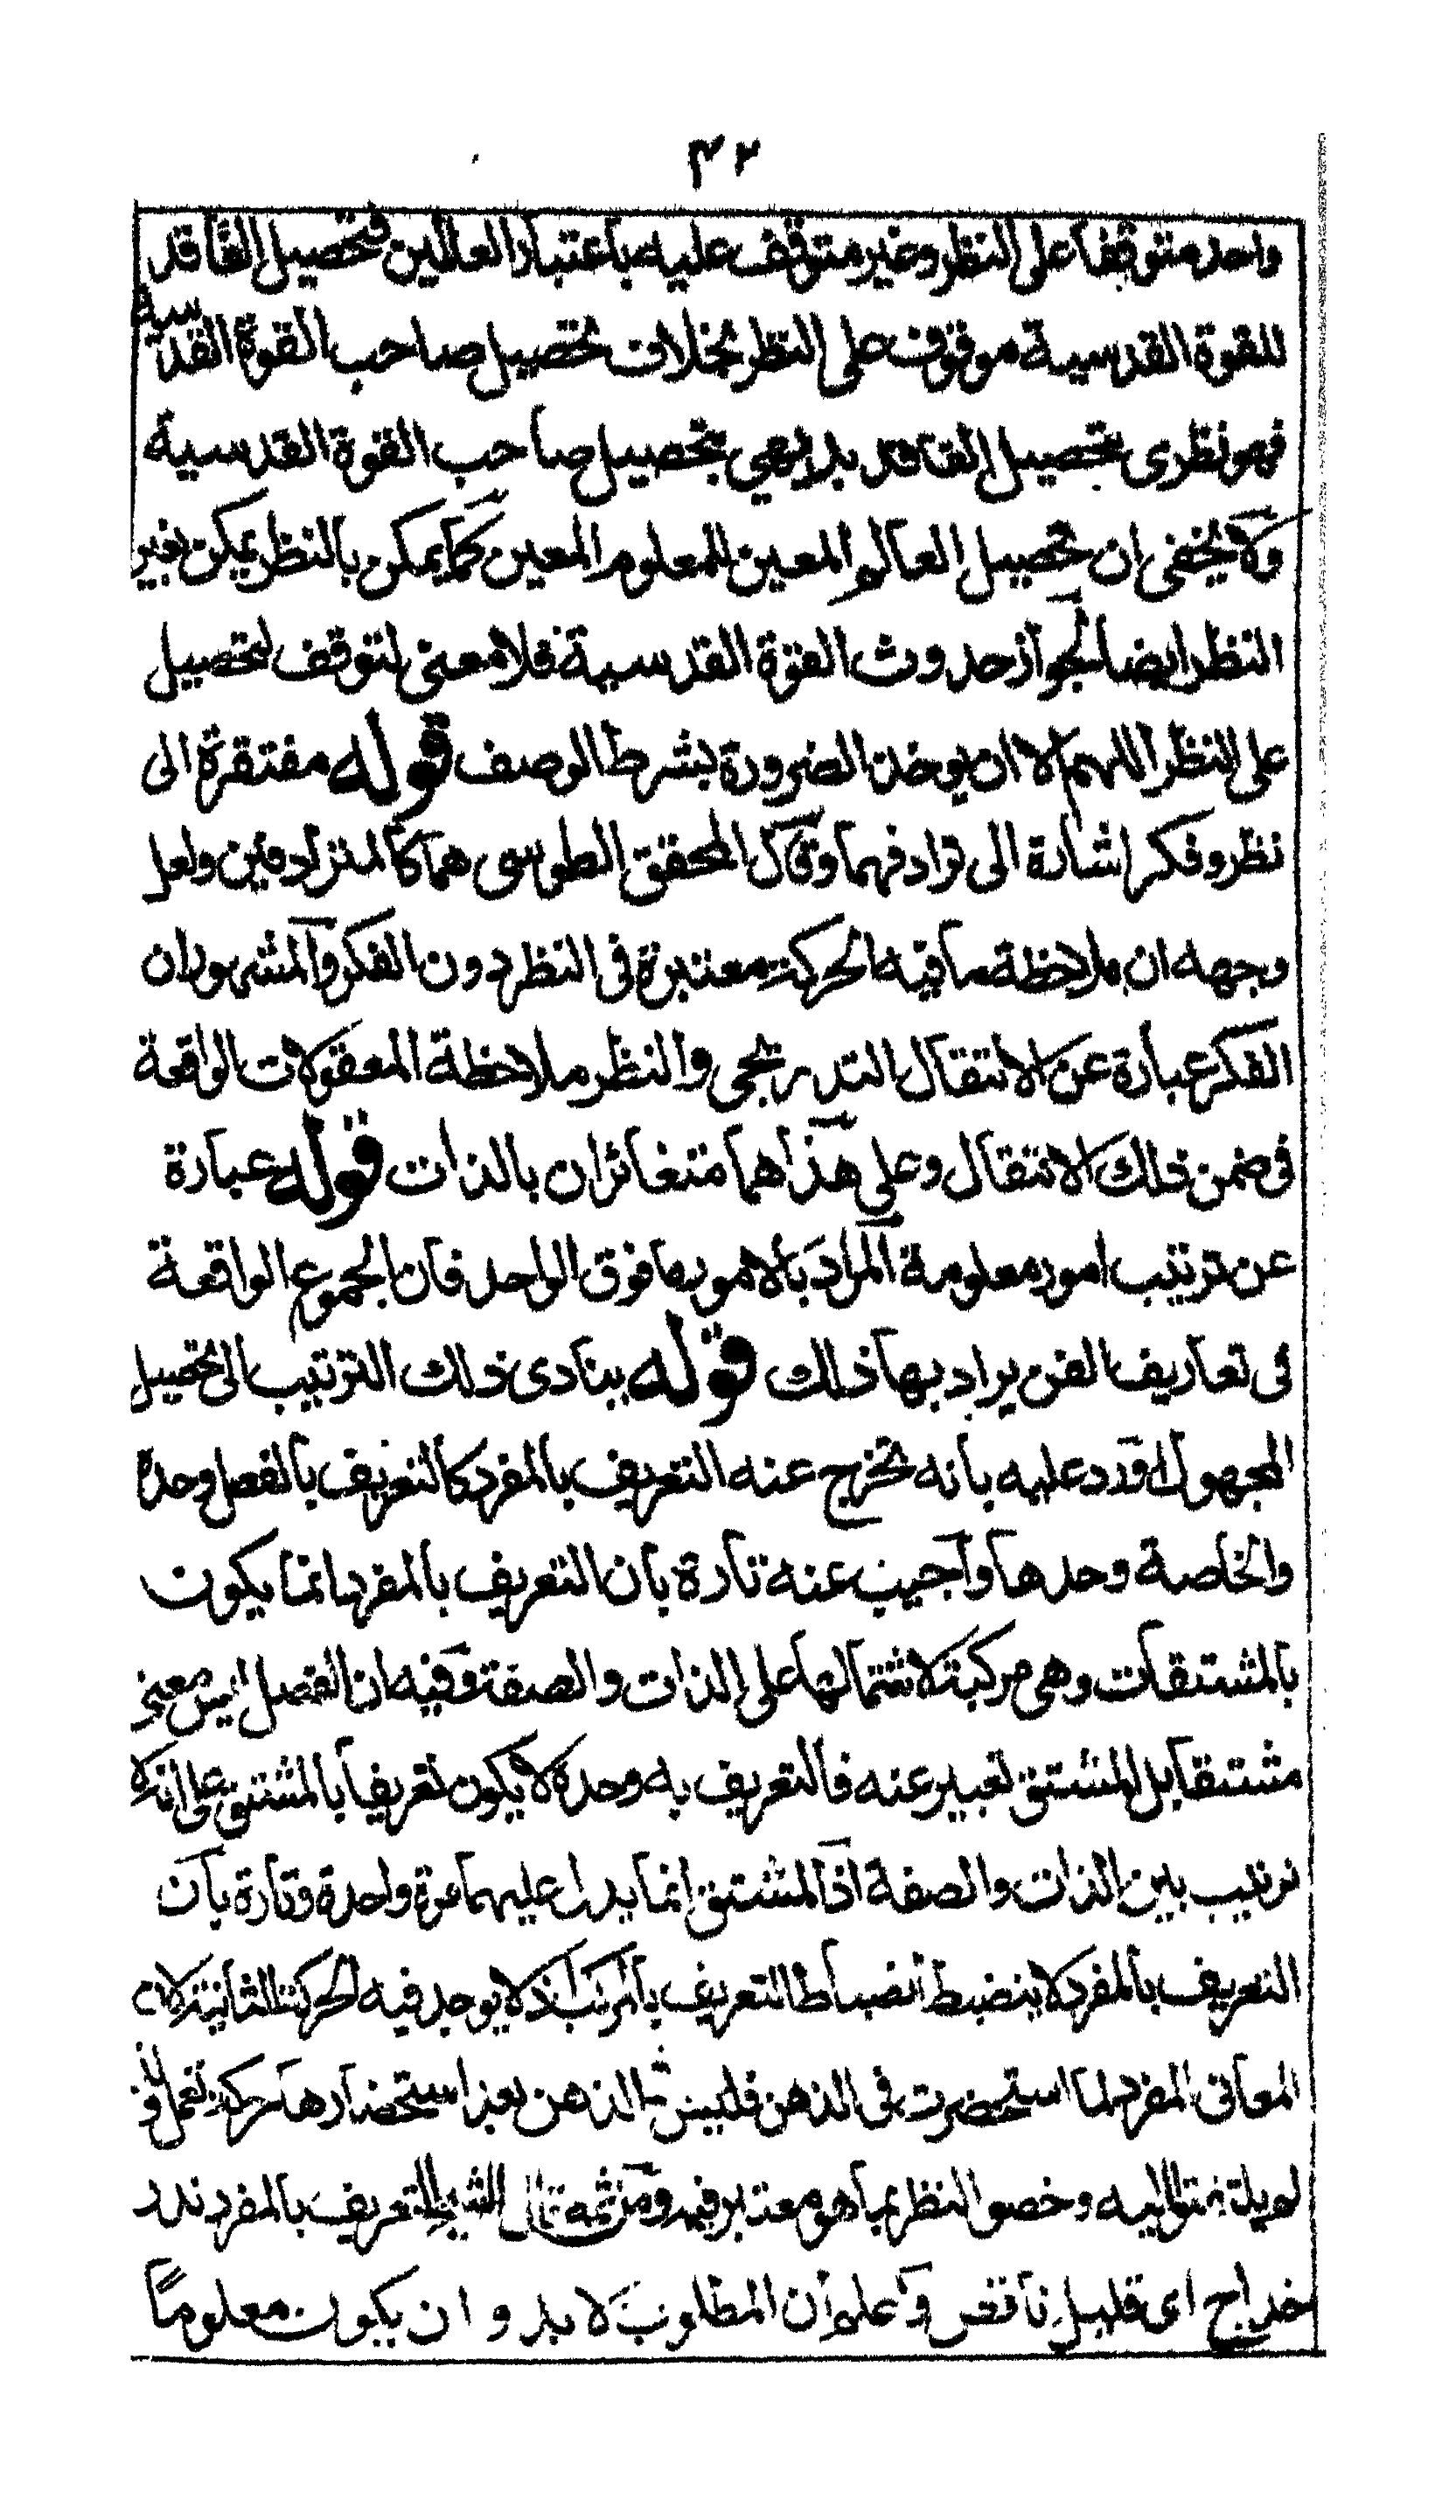 ٤٢
واحد متوقفا على النظر وغير متوقف عليه باعتبار العالمين فتحصيل الفاقد
للقوة القدسية موقوف على النظر بخلاف تحصيل صاحب القوة القدسية
فهو نظرى بتحصيل الفاقد بديهي بتحصيل صاحب القوة القدسية
ولا يخفى ان تحصيل العالم المعين للمعلوم المعين كما يمكن بالنظر يمكن بغير
النظر ايضا لجواز حدوث القوة القدسية فلا معنى لتوقف تحصيل
على النظر اللهم الا ان يوخذ الضرورة بشرط الوصف قوله مفتقرة الى
نظر وفكر اشارة الى ترادفهما وقال المحقق الطوسى هما كالمترادفين ولعل
وجهه ان ملاحظة ما فيه الحركة معتبرة فى النظر دون الفكر والمشهور ان
الفكر عبارة عن الانتقال التدريجى والنظر ملاحظة المعقولات الواقعة
فى ضمن ذلك الانتقال وعلى هذا هما متغائران بالذات قوله عبارة
عن ترتيب امور معلومة المراد بالامور ما فوق الواحد فان الجموع الواقعة
فى تعاريف الفن يراد بها ذلك قوله يتادى ذلك الترتيب الى تحصيل
المجهول اورد عليه بانه تخرج عنه التعريف بالمفرد كالتعريف بالفصل وحده
والخاصة وحدها واجيب عنه تارة بان التعريف بالمفرد انما يكون
بالمشتقات وهى مركبة لاشتمالها على الذات والصفة وفيه ان الفصل ليس معنى
مشتقا بل المشتق تعبير عنه فالتعريف به وحده لا يكون تعريفا بالمشتق على انه لا
ترتيب بين الذات والصفة اذ المشتق انما يدل عليهما مرة واحدة وتارة بان
التعريف بالمفرد لا ينضبط انضباط التعريف بالمركب اذ لا يوجد فيه الحركة الثانية لان
المعانى المفرد لما استحضرت فى الذهن فليس للذهن بعد استحضارها حركة
وخصوا النظر بما هو معتبر فيه ومن ثمه قال الشيخ التعريف بالمفرد نذر
خداج اى قليل ناقص واعلم ان المطلوب لا بد و ان يكون معلوماً